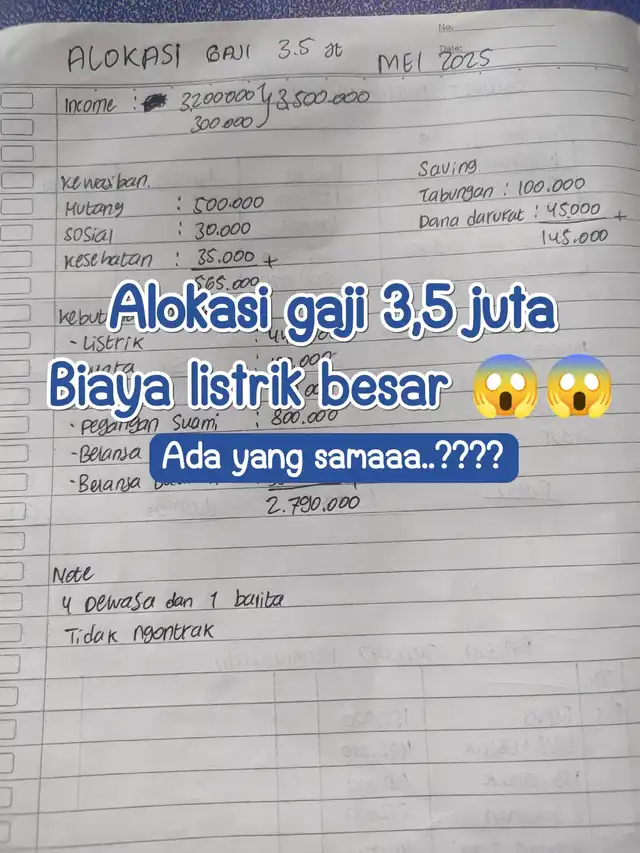 No.
Date:
ALOKASI GAJI 3.5 jt MEI 2025
Income : 3.200.000 } 3.500.000
300.000
Kewajiban.
Hutang : 500.000
Sosial : 30.000
Kesehatan : 35.000 +
565.000
Saving
Tabungan : 100.000
Dana darurat : 45.000 +
145.000
Alokasi gaji 3,5 juta
- Listrik
Biaya listrik besar 😱😱
- Pegangan Suami : 800.000
- Belanja
Ada yang samaaa..????
- Belanja
2.790.000
Note
4 Dewasa dan 1 balita
Tidak ngontrak